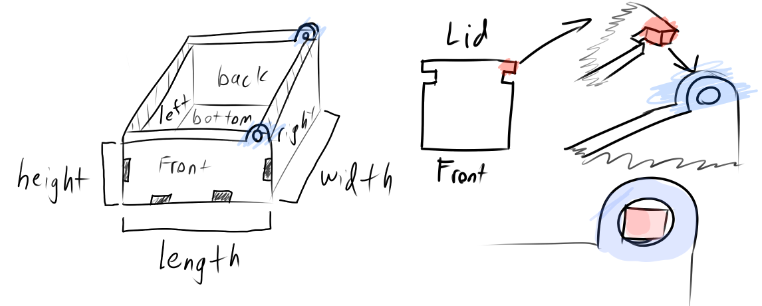 back
left
bottom
right
Front
height
width
length
Lid
Front